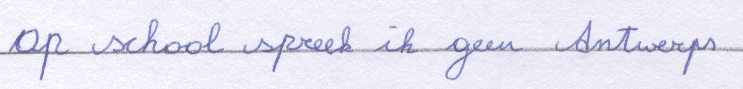 Op school spreek ik geen Antwerps